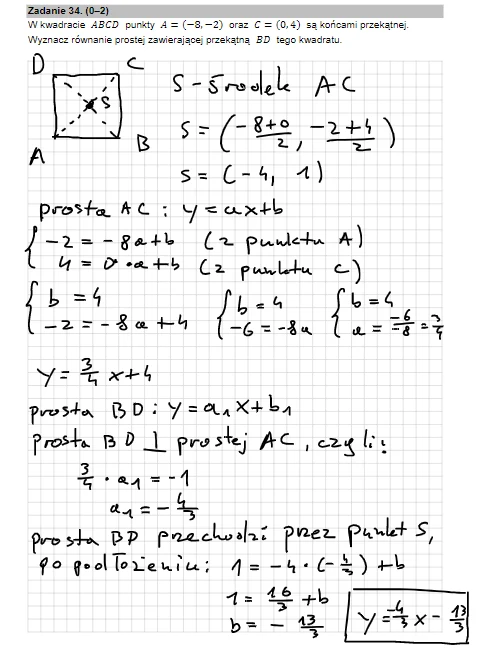 Zadanie 34. (0–2)
W kwadracie ABCD punkty A = (−8,−2) oraz C = (0,4) są końcami przekątnej.
Wyznacz równanie prostej zawierającej przekątną BD tego kwadratu.
D C
S
A B
S - środek AC
S = (-8+0/2, -2+4/2)
S = (-4, 1)
prosta AC : y = ax+b
{ -2 = -8a+b (z punktu A)
4 = 0·a+b (z punktu C)
{ b = 4
-2 = -8a+4
{ b = 4
-6 = -8a
{ b = 4
a = -6/-8 = 3/4
y = 3/4 x+4
prosta BD : y = a₁x+b₁
prosta BD ⊥ prostej AC, czyli:
3/4 · a₁ = -1
a₁ = -4/3
prosta BD przechodzi przez punkt S,
po podłożeniu: 1 = -4·(-4/3)+b
1 = 16/3 + b
b = - 13/3
y = -4/3 x - 13/3